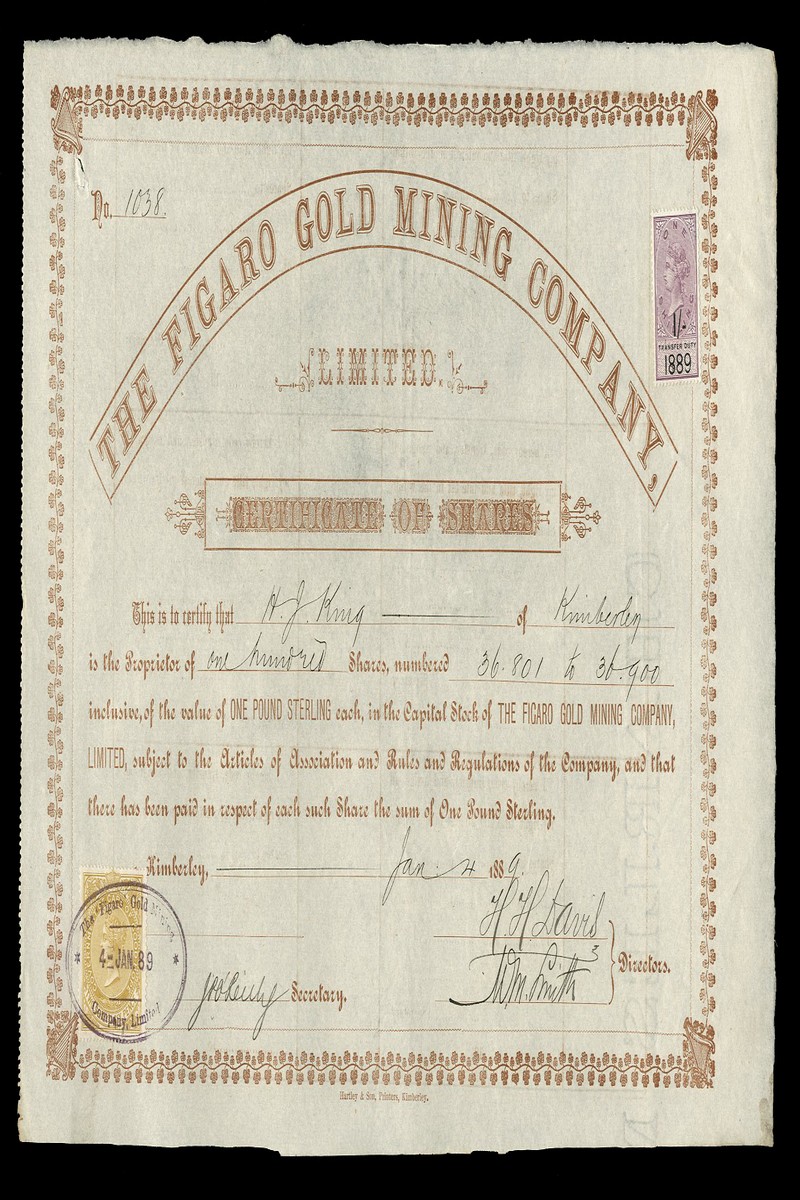 No. 1038.
THE FIGARO GOLD MINING COMPANY,
LIMITED.
ONE
1/-
TRANSFER DUTY
1889
CERTIFICATE OF SHARES
This is to certify that H. J. King of Kimberley
is the Proprietor of one hundred Shares, numbered 36.801 to 36.900
inclusive, of the value of ONE POUND STERLING each, in the Capital Stock of THE FIGARO GOLD MINING COMPANY,
LIMITED, subject to the Articles of Association and Rules and Regulations of the Company, and that
there has been paid in respect of each such Share the sum of One Pound Sterling.
Kimberley, Jan. 4 1889.
The "Figaro" Gold Mining
4-JAN.89
Company, Limited
H. H. Davis
Wm. Smith
Directors.
Secretary.
Hartley & Son, Printers, Kimberley.